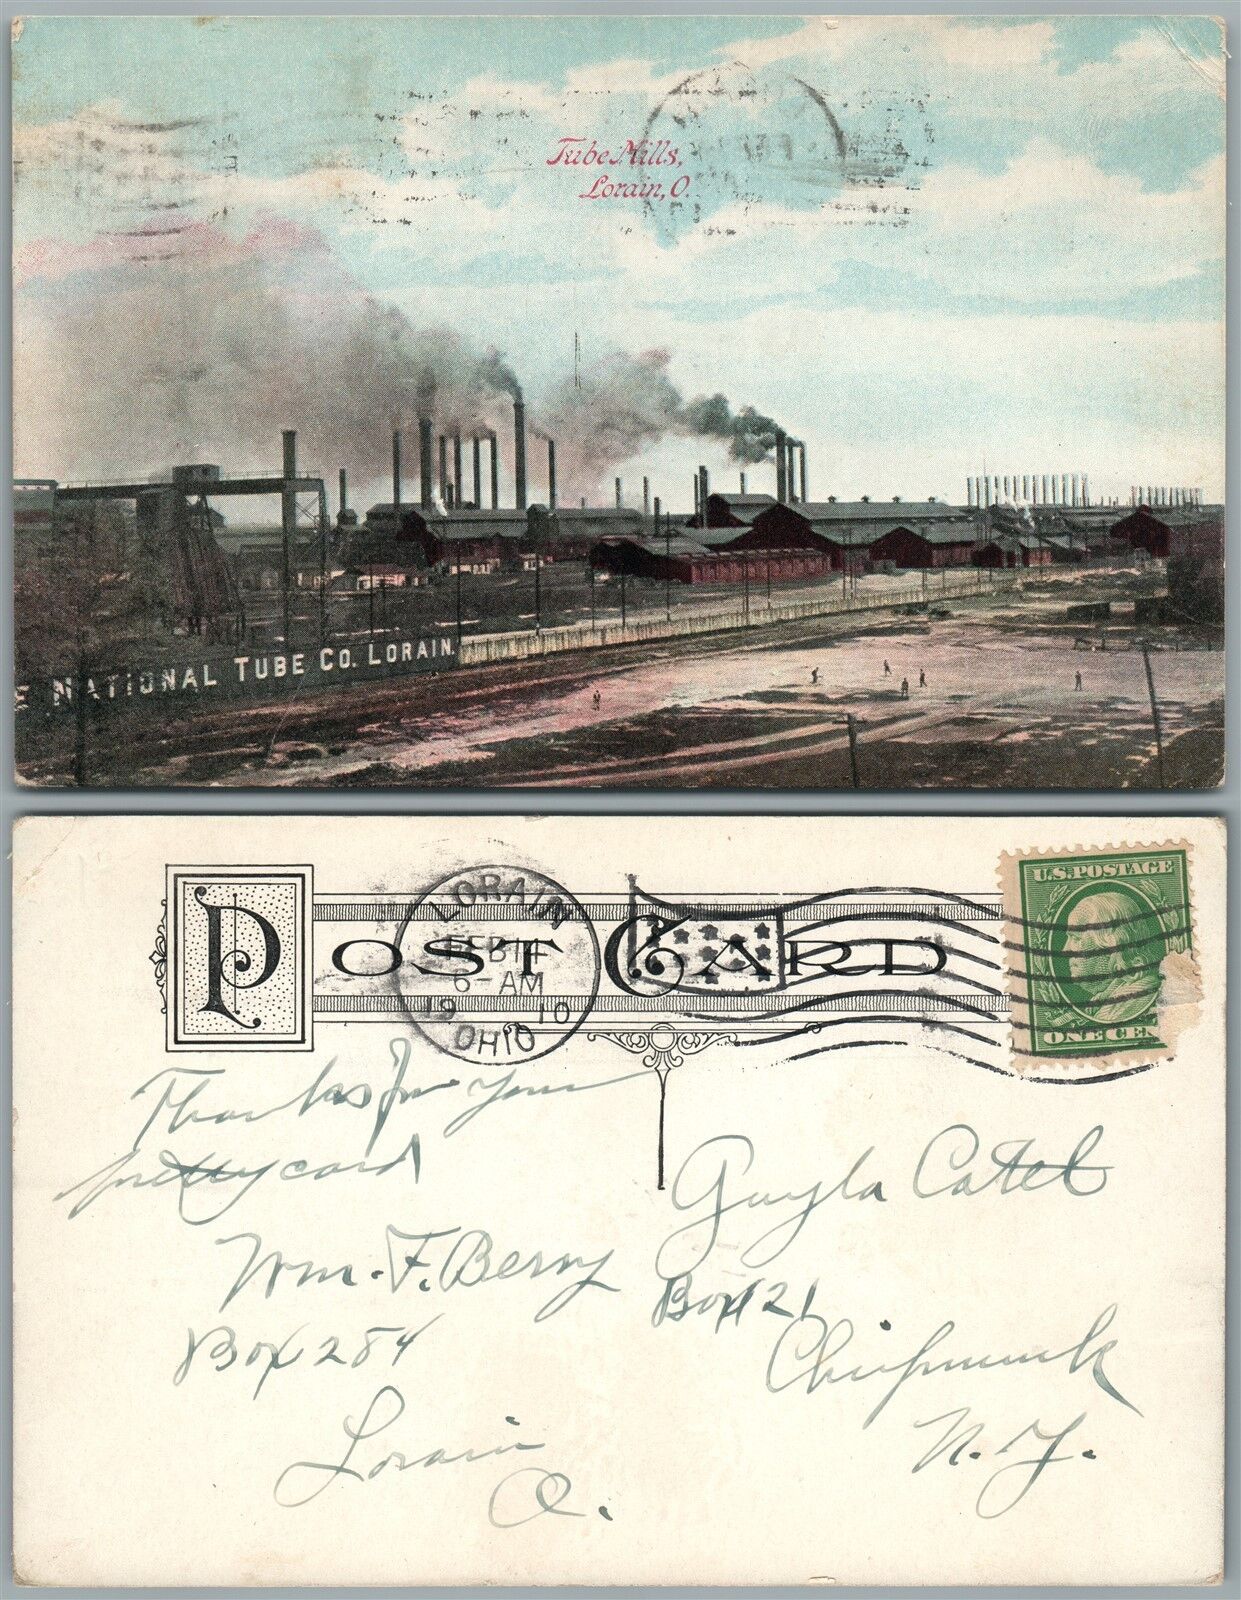 Tube Mills,
Lorain, O.
E NATIONAL TUBE CO. LORAIN.
POST CARD
LORAIN
FEB 14
6-AM
1910
OHIO
U.S. POSTAGE
ONE CEN
Thanks for your
pretty card
Wm. F. Berry
Box 284
Lorain
O.
Guyla Catel
Box 121
Chipmunk
N. Y.